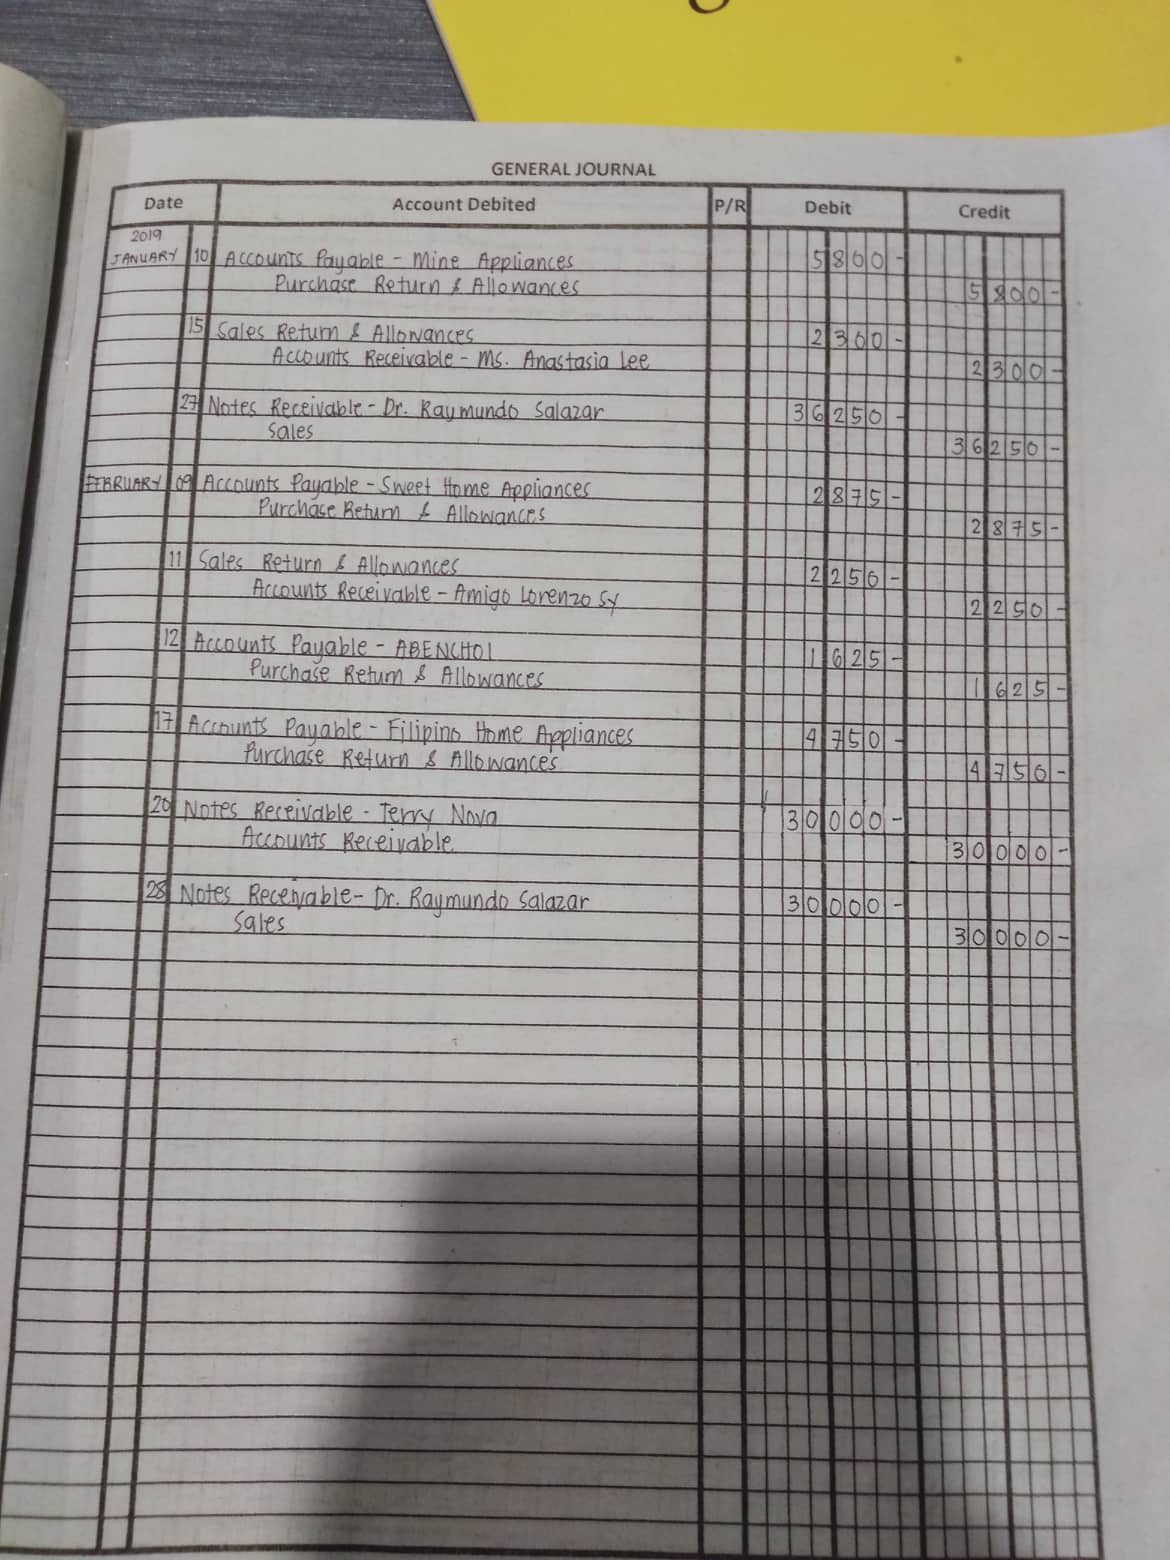 GENERAL JOURNAL
Date Account Debited P/R Debit Credit
2019
JANUARY 10 Accounts Payable - Mine Appliances 5800-
Purchase Return & Allowances 5800-
15 Sales Return & Allowances 2300-
Accounts Receivable - Ms. Anastasia Lee 2300-
27 Notes Receivable - Dr. Raymundo Salazar 36250-
Sales 36250-
FEBRUARY 09 Accounts Payable - Sweet Home Appliances 2875-
Purchase Return & Allowances 2875-
11 Sales Return & Allowances 2250-
Accounts Receivable - Amigo Lorenzo Sy 2250-
12 Accounts Payable - ABENCHOI 1625-
Purchase Return & Allowances 1625-
17 Accounts Payable - Filipino Home Appliances 4750-
Purchase Return & Allowances 4750-
20 Notes Receivable - Terry Nova 30000-
Accounts Receivable 30000-
28 Notes Receivable - Dr. Raymundo Salazar 30000-
Sales 30000-